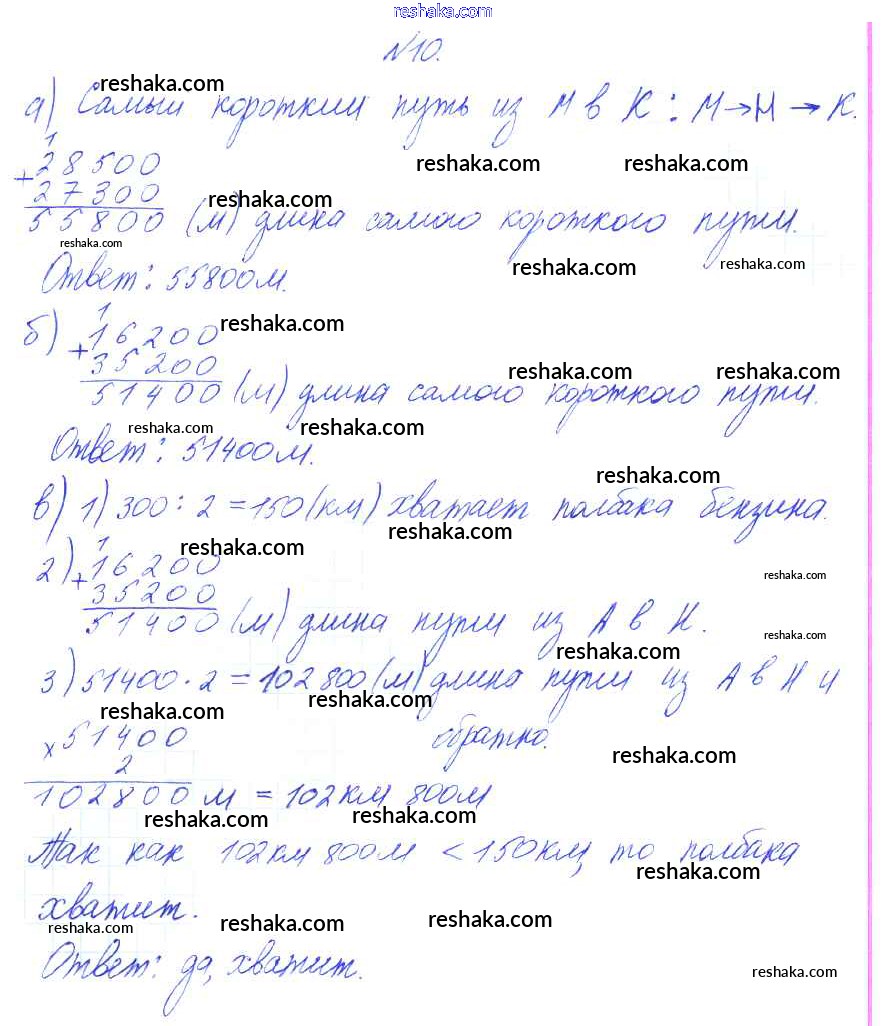 reshaka.com
№10.
reshaka.com
а) Самый короткий путь из М в К : М → Н → К.
1
+ 28500
reshaka.com reshaka.com
27300
reshaka.com
55800 (м) длина самого короткого пути.
reshaka.com
reshaka.com reshaka.com
Ответ: 55800м.
1
б) + 16200
reshaka.com
35200
reshaka.com reshaka.com
51400 (м) длина самого короткого пути.
reshaka.com reshaka.com
Ответ: 51400м.
reshaka.com
в) 1) 300 : 2 = 150 (км) хватает полбака бензина.
reshaka.com
1 reshaka.com
2) + 16200
reshaka.com
35200
51400 (м) длина пути из А в Н.
reshaka.com
reshaka.com
3) 51400 · 2 = 102 800 (м) длина пути из А в Н и
reshaka.com reshaka.com
обратно.
х 51400
reshaka.com
2
102800 м = 102км 800м
reshaka.com reshaka.com
Так как 102км 800м < 150км, то полбака
reshaka.com
хватит.
reshaka.com reshaka.com reshaka.com
Ответ: да, хватит.
reshaka.com